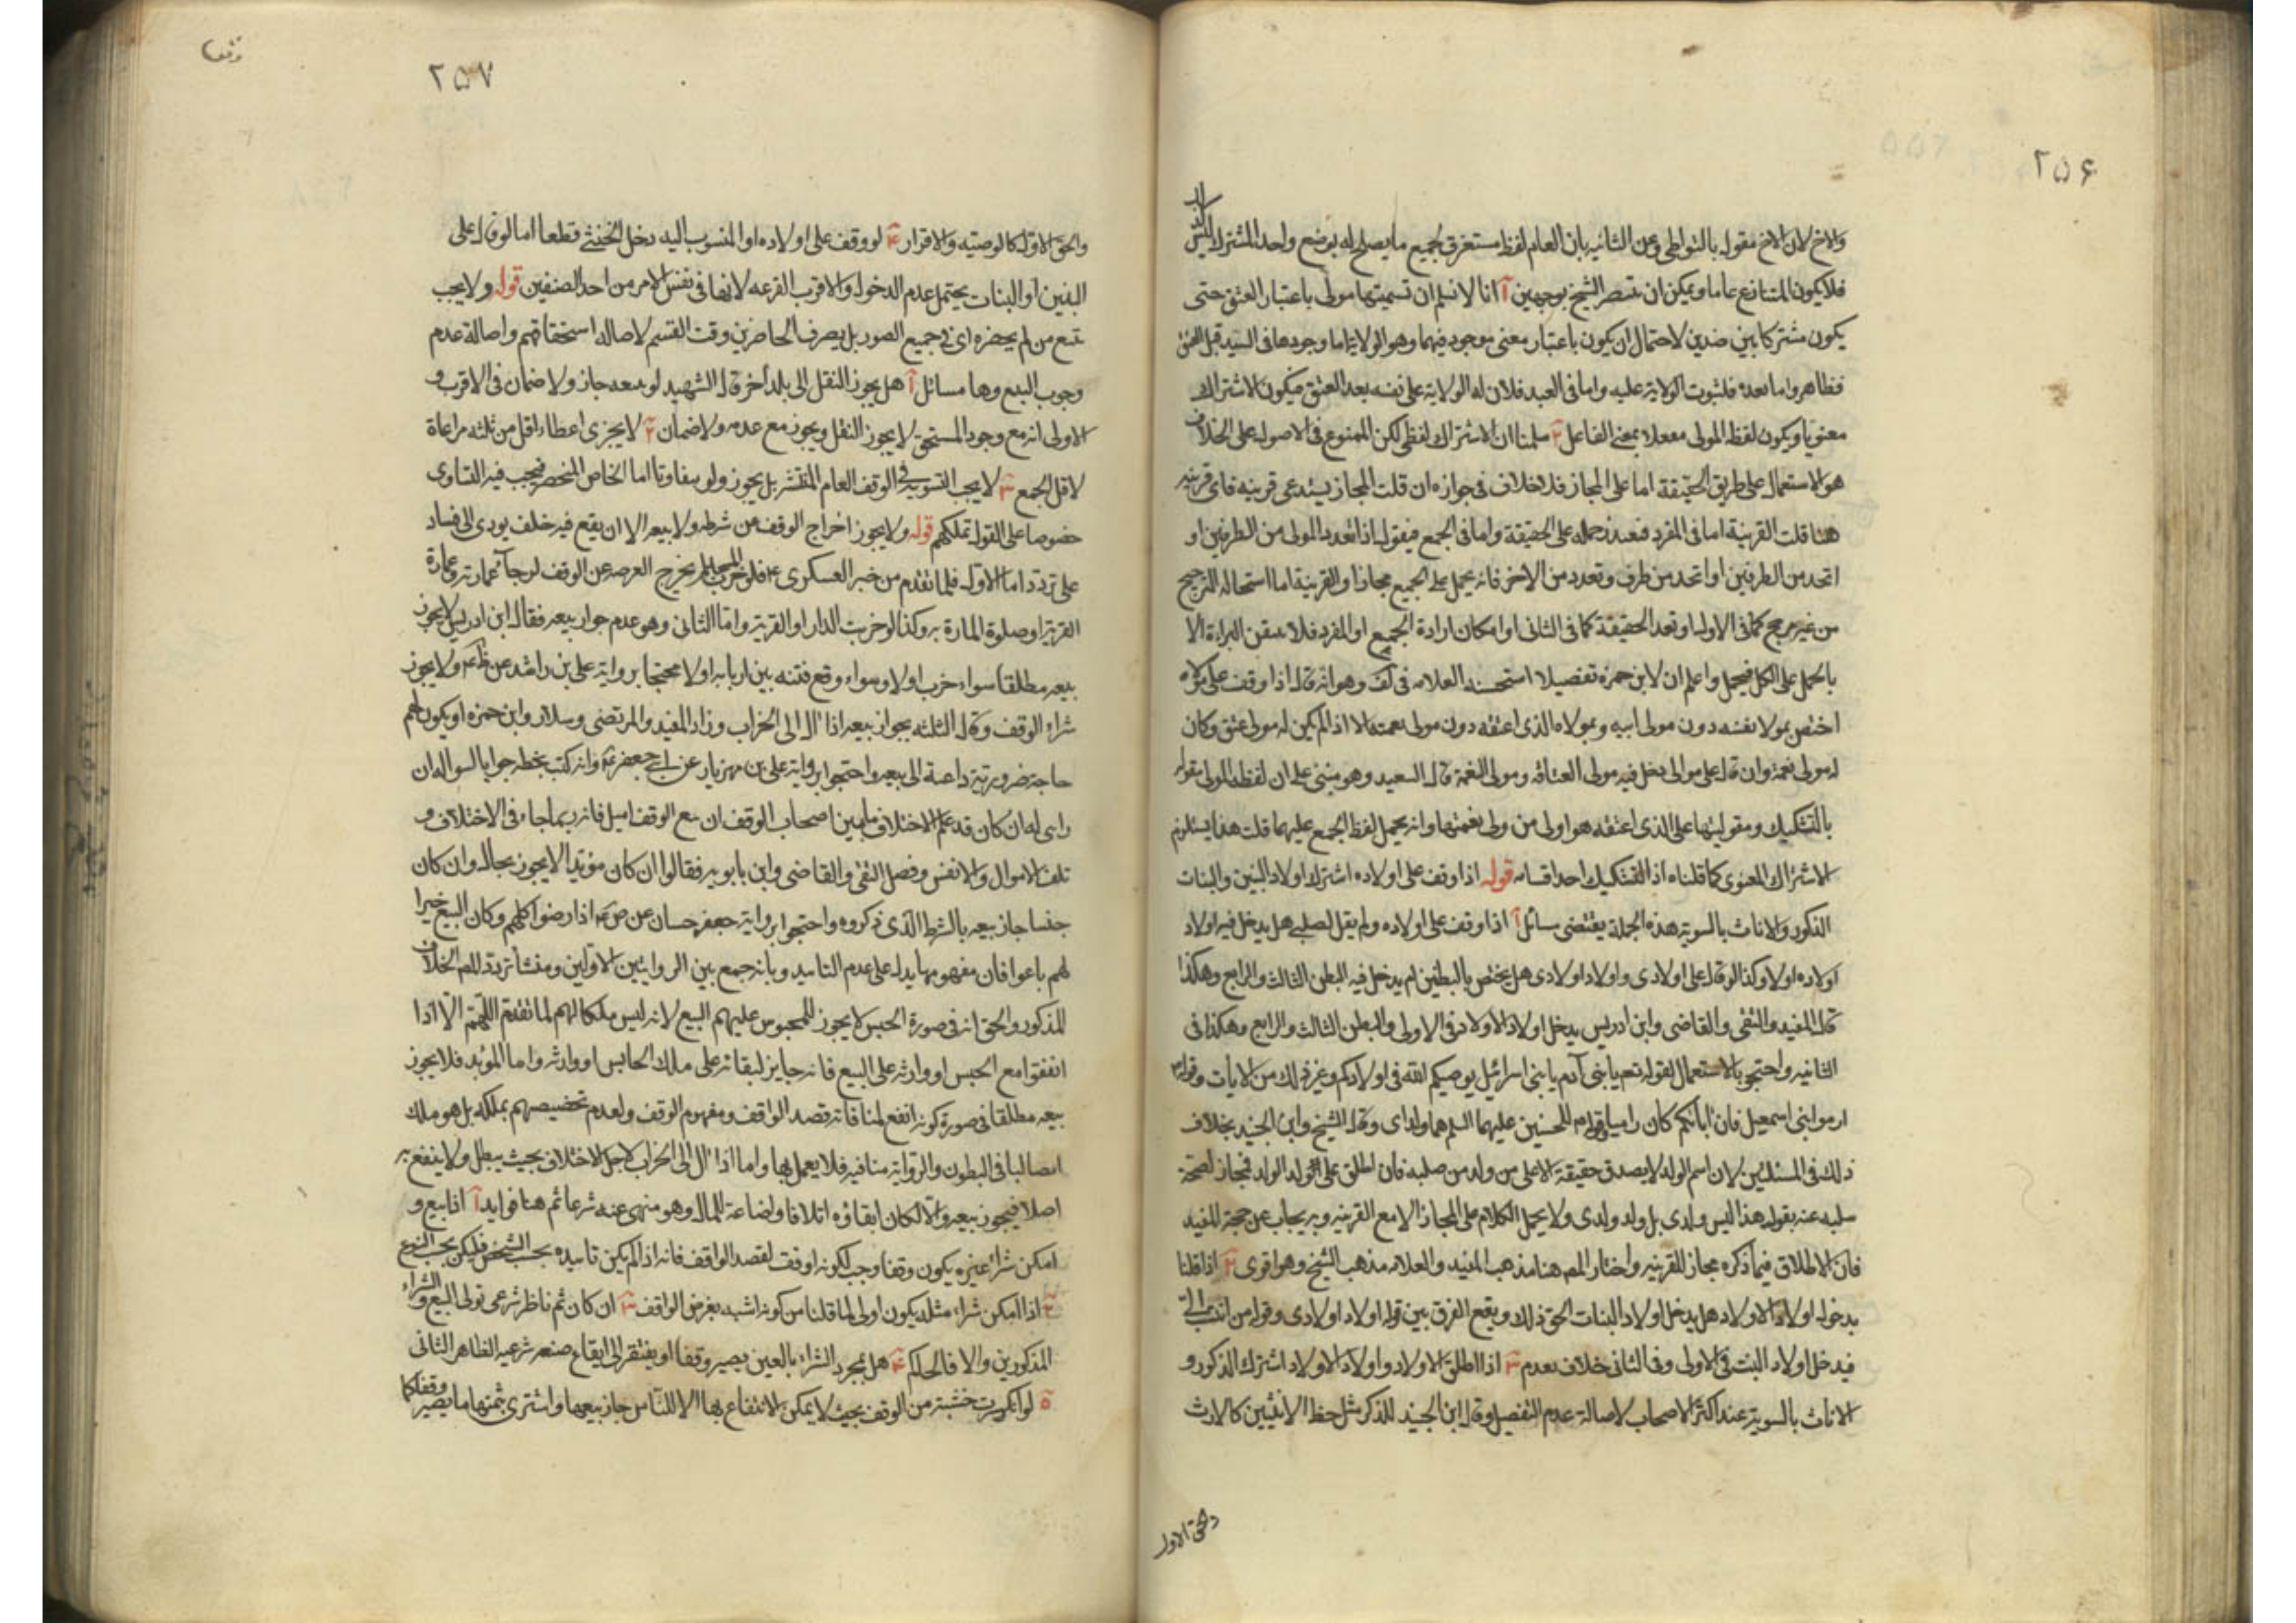 ٢٥۶
والاخ لان الاخ مقول بالتواطى وعن الثانيه بان العام لفظ مستغرق لجميع ما يصلح له بوضع واحد والمشترك ليس
فلا يكون المتنازع عاما ويمكن ان ينتصر الشيخ بوجهين آ انا لا نسلم ان تسميتها مولى باعتبار العتق حتى
يكون مشتركا بين ضدين لاحتمال ان يكون باعتبار معنى موجود فيهما وهو الولاية اما وجودها فى السيد قبل العتق
فظاهر واما بعده فلثبوت الولاية عليه واما فى العبد فلان له الولاية على نفسه بعد العتق فيكون الاشتراك
معنويا ويكون لفظ المولى مفعلا بمعنى الفاعل ٢ سلمنا ان الاشتراك لفظى لكن الممنوع فى الاصول على الخلاف
هو الاستعمال على طريق الحقيقة اما على المجاز فلا خلاف فى جوازه ان قلت المجاز يستدعى قرينه فاى قرينه
هنا قلت القرينة اما فى المفرد فبعد حمله على الحقيقة واما فى الجمع فيقول اذا تعدد المولى من الطرفين او
اتحد من الطرفين او اتحد من طرف وتعدد من الاخر فانه يحمل على الجميع مجازا والقرينة اما استحاله الترجيح
من غير مرجح كما فى الاول او تعدد الحقيقة كما فى الثانى او امكان ارادة الجميع او المفرد فلا يتيقن البراءة الا
بالحمل على الكل فيحمل واعلم ان لابن حمزه تفصيلا استحسنه العلامه فى لف وهو انه قال اذا وقف على مولاه
اختص بمولا نفسه دون مولى ابيه وبمولاه الذى اعتقه دون مولى نعمته الا اذا لم يكن له مولى عتق وكان
له مولى نعمة وان قال على موالى دخل فيه مولى العتاقه ومولى النعمة قال السعيد وهو مبنى على ان لفظه المولى يقوله
بالتشكيك ومقوليتها على الذى اعتقه هو اولى من ولى نعمتها وانه يحمل لفظ الجمع عليهما قلت هذا يستلزم
الاشتراك المعنوى كما قلناه اذ التشكيك احد اقسامه قوله اذا وقف على اولاده اشترك اولاد البنين والبنات
الذكور والاناث بالسوية هذه الجملة يقتضى مسائل آ اذا وقف على اولاده ولم يقل لصلبى هل يدخل فيه اولاد
اولاده اولا وكذا لو قال على اولادى واولاد اولادى هل يختص بالبطنين لم يدخل فيه البطن الثالث والرابع وهكذا
قال المفيد والتقى والقاضى وابن ادريس يدخل اولاد الاولاد فى الاولى والبطن الثالث والرابع وهكذا فى
الثانيه واحتجوا بالاستعمال لقوله تعم يا بنى آدم يا بنى اسرائيل يوصيكم الله فى اولادكم وغير ذلك من الايات وقوله
ارموا بنى اسمعيل فان اباكم كان راميا وقوله للحسنين عليهما السلم هما ولداى وقال الشيخ وابن الجنيد بخلاف
ذلك فى المسئلتين لان اسم الولد لا يصدق حقيقة الا على من ولد من صلبه فان اطلق على الولد الولد فمجاز لصحة
سلبه عنه بقوله هذا ليس ولدى بل ولد ولدى ولا يحمل الكلام على المجاز الا مع القرينه وبه يجاب عن حجة المفيد
فان الاطلاق فيما ذكره مجاز للقرينه واختار المص هنا مذهب المفيد والعلامه مذهب الشيخ وهو اقوى ٢ اذا قلنا
بدخول اولاد الاولاد هل يدخل اولاد البنات الحق ذلك ويقع الفرق بين قوله اولاد اولادى وقوله من انتسب الى
فيدخل اولاد البنت فى الاولى وفى الثانى خلاف تقدم ٣ اذا اطلق الاولاد واولاد الاولاد اشترك الذكور و
الاناث بالسوية عند اكثر الاصحاب لاصالة عدم التفضيل وقال ابن الجنيد للذكر مثل حظ الانثيين كالارث
والحق الاول
وقف
٢٥٧
والحق الاول كالوصيه والاقرار ۴ لو وقف على اولاده او المنسوب اليه دخل الخنثى قطعا اما لو قال على
البنين او البنات يحتمل عدم الدخول والاقرب القرعه لانها فى نفس الامر من احد الصنفين قوله ولا يجب
تتبع من لم يحضره اى فى جميع الصور بل يصرف الحاضرين وقت القسم لاصاله استحقاقهم واصالة عدم
وجوب التتبع وها مسائل آ هل يجوز النقل الى بلد آخر قال الشهيد لو بعد جاز ولا ضمان فى الاقرب و
الاولى انه مع وجود المستحق لا يجوز النقل ويجوز مع عدمه ولا ضمان ٢ لا يجزى اعطاء اقل من ثلثه مراعاة
لاقل الجمع ٣ لا يجب التسوية فى الوقف العام المنتشر بل يجوز ولو متفاوتا اما الخاص المنحصر فيجب فيه التساوى
خصوصا على القول بتملكهم قوله ولا يجوز اخراج الوقف من شرطه ولا بيعه الا ان يقع فيه خلف يودى الى فساد
على تردد اما الاول فلما تقدم من خبر العسكرى ع فلو خرب المحله لم يخرج العرصه عن الوقف لرجاء عمارة
القرية او صلوة المارة به وكذا لو خربت الدار او القرية واما الثانى وهو عدم جواز بيعه فقال ابن ادريس لا يجوز
بيعه مطلقا سواء خرب اولا وسواء وقع فتنه بين اربابه اولا محتجا برواية على بن راشد عن ولا يجوز
شراء الوقف وقال الثلثه بجواز بيعه اذا آل الى الخراب وزاد المفيد والمرتضى وسلار وابن حمزه او يكون لهم
حاجة ضرورية داعية الى بيعه واحتجوا برواية على بن مهزيار عن ابى جعفر ع وانه كتب بخطه جوابا لسواله ان
راى له ان كان قد علم الاختلاف ما بين اصحاب الوقف ان بيع الوقف امثل فانه ربما جاء فى الاختلاف و
تلف الاموال والانفس وفصل التقى والقاضى وابن بابويه فقالوا ان كان مؤبدا لا يجوز بحال وان كان
حبسا جاز بيعه بالشرط الذى ذكروه واحتجوا برواية جعفر حسان عن ص ع اذا رضوا كلهم وكان البيع خيرا
لهم باعوا فان مفهومها يدل على عدم التابيد وبانه جمع بين الروايتين الاولين ومنشأ تردد المص الخلاف
المذكور والحق انه فى صورة الحبس لا يجوز للمحبوس عليهم البيع لانه ليس ملكا لهم لما تقدم اللهم الا اذا
اتفقوا مع الحبس او وارثه على البيع فانه جايز لبقائه على ملك الحابس او وارثه واما المؤبد فلا يجوز
بيعه مطلقا فى صورة كونه انفع لمنافاته قصد الواقف ومفهوم الوقف ولعدم تخصيصهم بملكه بل هو ملك
لصالبا فى البطون والرواية منافيه فلا يعمل بها واما اذا آل الى الخراب لاجل الاختلاف بحيث يبطل ولا ينفع به
اصلا فيجوز بيعه والا لكان ابقاؤه اتلافا واضاعة للمال وهو منهى عنه شرعا ثم هنا فوايد آ اذا بيع و
امكن شراء غيره يكون وقفا وجب لكونه اوفق لقصد الواقف فانه اذا لم يكن تابيده بحسب الشخص فليكن بحسب النوع
٢ اذا امكن شراء مثله يكون اولى لما قلنا من كونه اشبه بغرض الواقف ٣ ان كان ثم ناظر شرعى تولى البيع والشراء
المذكورين والا فالحاكم ۴ هل بمجرد الشراء بالعين يصير وقفا او يفتقر الى ايقاع صيغه شرعيه الظاهر الثانى
۵ لو انكسرت خشبة من الوقف بحيث لا يمكن الانتفاع بها الا للناس جاز بيعها واشترى بثمنها ما يصير وقفا كما